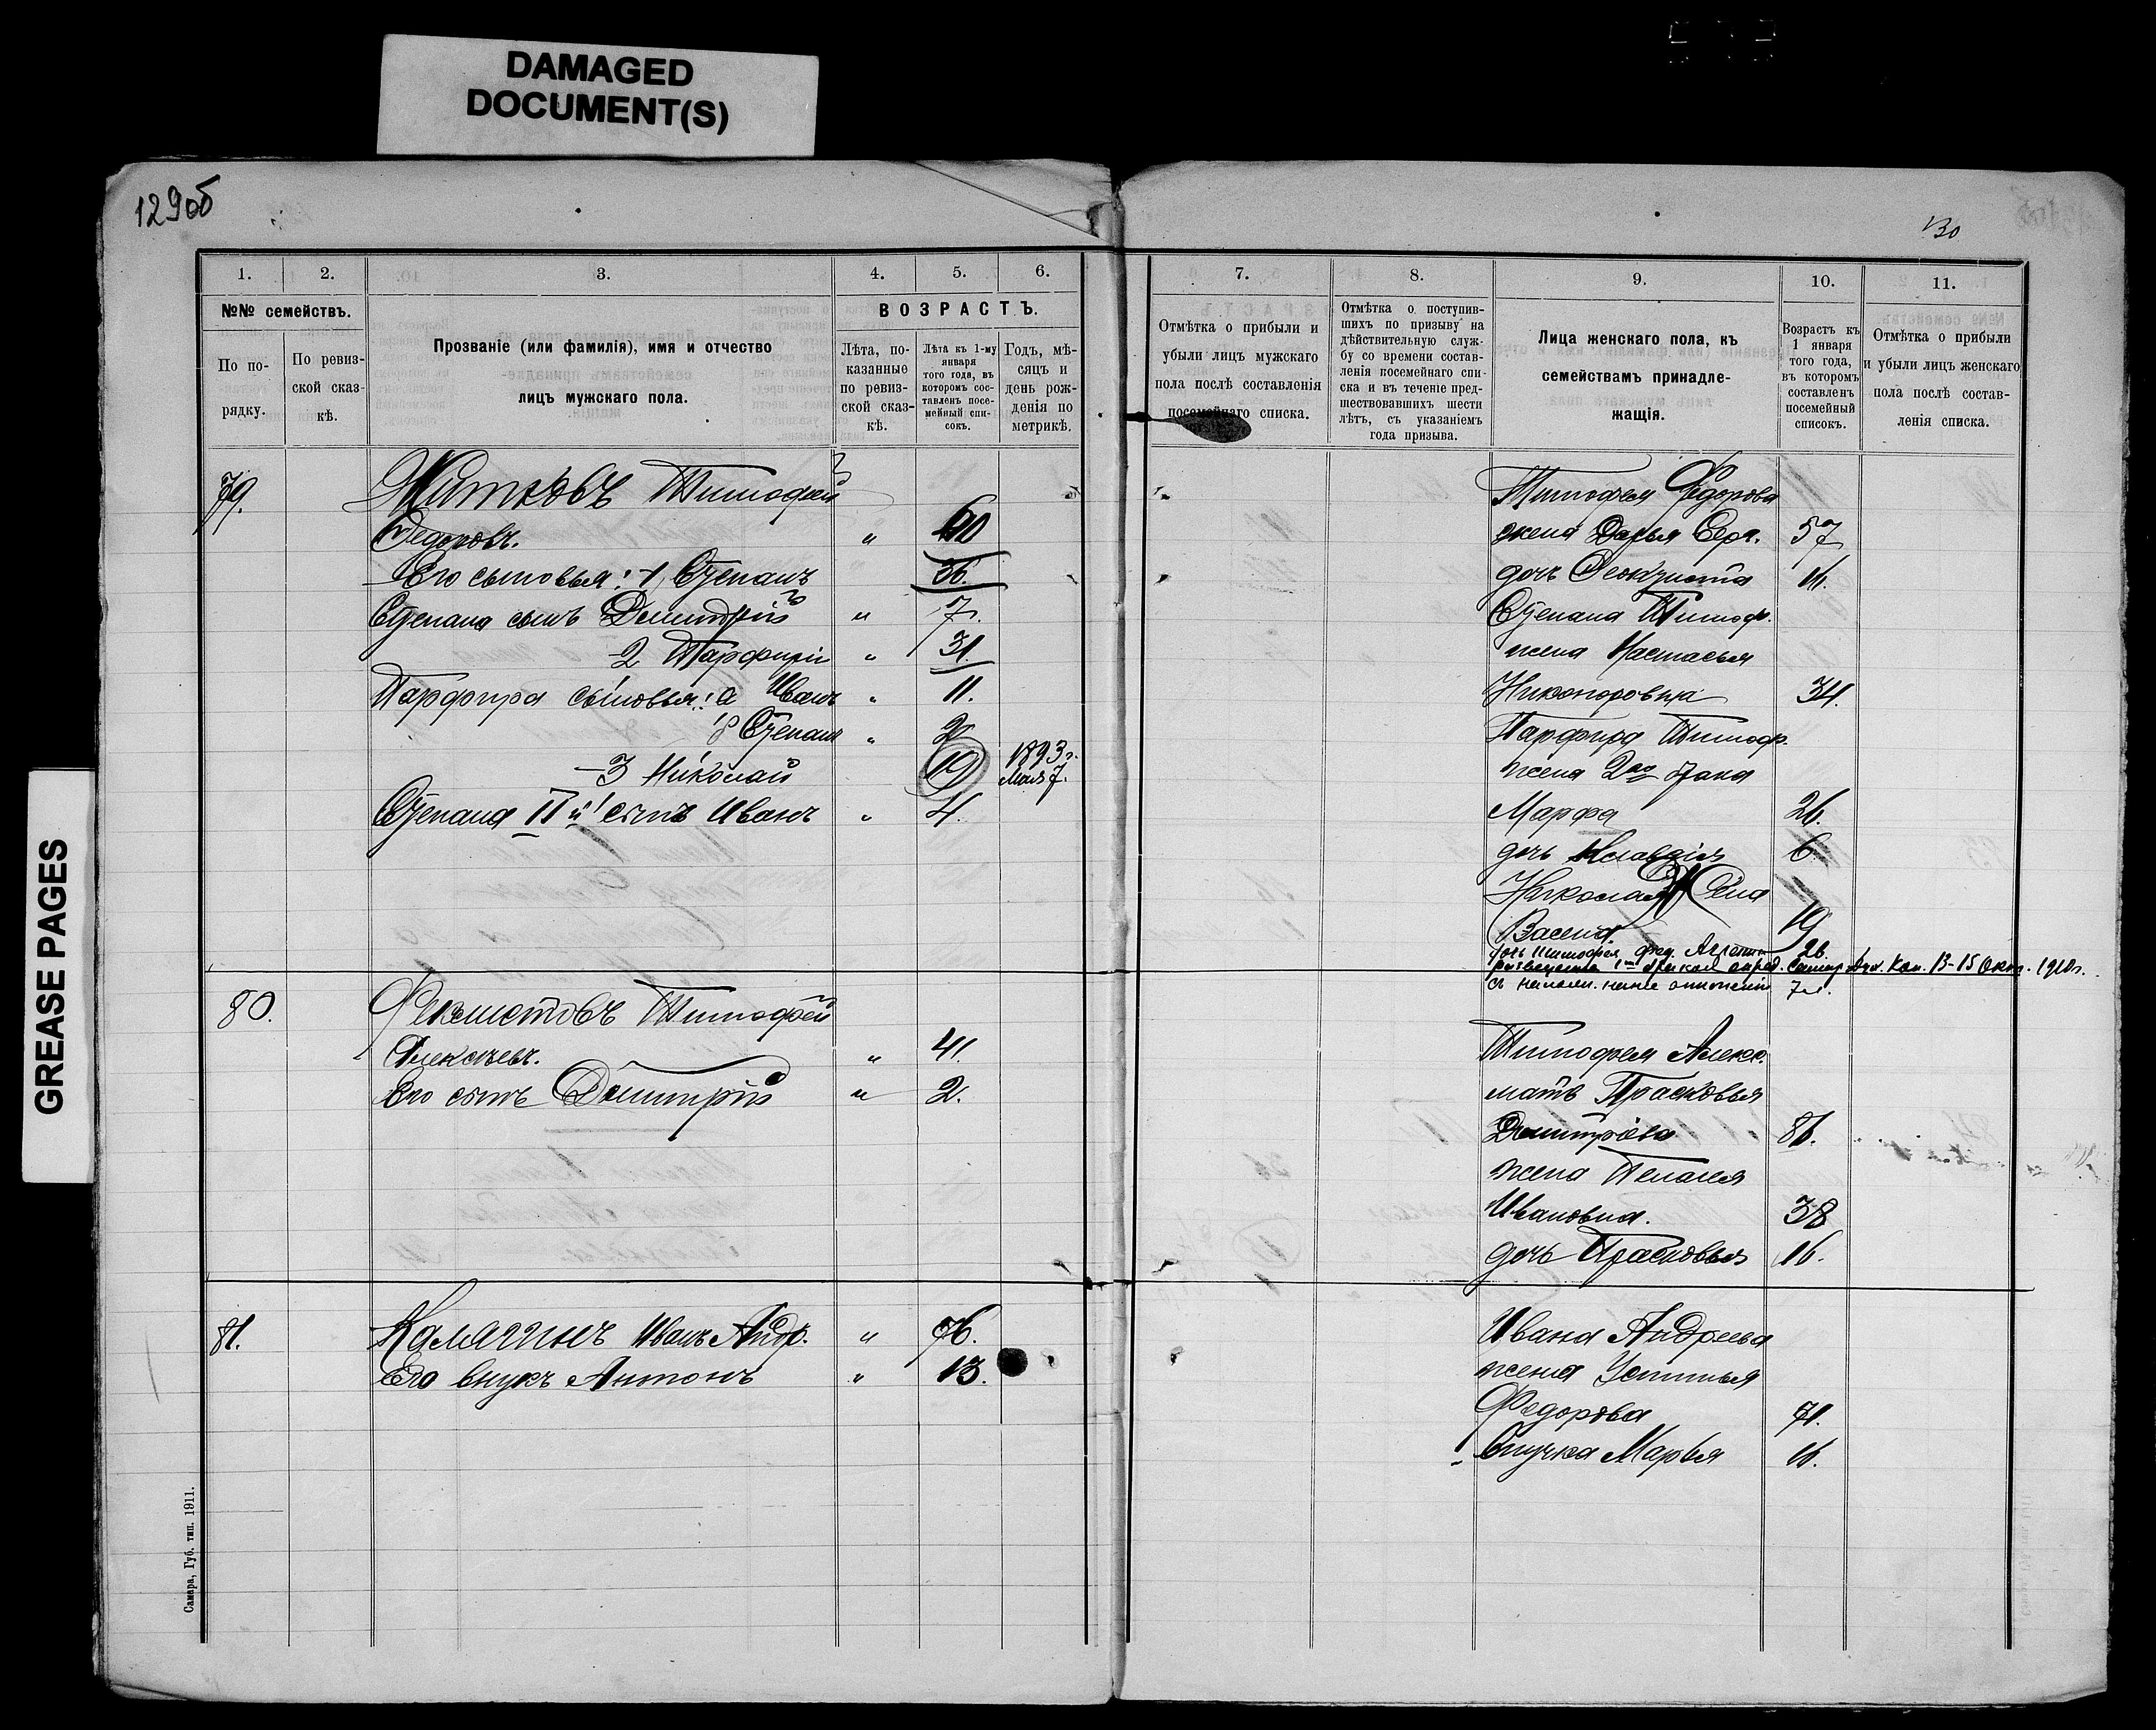 DAMAGED
DOCUMENT(S)
GREASE PAGES
129об
130
1.
2.
3.
4.
5.
6.
№№ семействъ.
По по-
рядку.
По ревиз-
ской сказ-
кѣ.
Прозваніе (или фамилія), имя и отчество
лицъ мужскаго пола.
ВОЗРАСТЪ.
Лѣта, по-
казанные
по ревиз-
ской сказ-
кѣ.
Лѣта къ 1-му
января
того года, въ
которомъ сос-
тавленъ посе-
мейный спи-
сокъ.
Годъ, мѣ-
сяцъ и
день рож-
денія по
метрикѣ.
79.
Житковъ Тимофей
Федоровъ. " 60
Его сыновья: 1, Степанъ 36.
Степана сынъ Димитрій " 7.
2 Парфирій " 31.
Парфира сыновья: а Иванъ " 11.
Степан " 2
3 Николай 19 1893 г.
Мая 7.
Степана II й сынъ Иванъ " 4.
80.
Тимофей
Алексѣевъ. " 41.
Его сынъ Димитрій " 2.
81.
Калягинъ Иванъ Андр. " 76.
Его внукъ Антонъ " 13.
Самара, Губ. тип. 1911.
7.
8.
9.
10.
11.
Отмѣтка о прибыли и
убыли лицъ мужскаго
пола послѣ составленія
посемейнаго списка.
Отмѣтка о поступив-
шихъ по призыву на
дѣйствительную служ-
бу со времени состав-
ленія посемейнаго спи-
ска и въ теченіе пред-
шествовавшихъ шести
лѣтъ, съ указаніемъ
года призыва.
Лица женскаго пола, къ
семействамъ принадле-
жащія.
Возрастъ къ
1 января
того года,
въ которомъ
составленъ
посемейный
списокъ.
Отмѣтка о прибыли
и убыли лицъ женскаго
пола послѣ состав-
ленія списка.
Тимофея Федорова
жена Дарья Серг. 57
дочь Феоктиста 16.
Степана Тимоф.
жена Настасья
Никоноровна 34.
Парфира Тимоф.
жена 2го брака
Марфа 26.
дочь Клавдія 6
Николая Жена
Васена 19
дочь Тимофея Фед. 26.
13-15 Окт. 1910г.
Тимофея Алекс.
мать Прасковья
Дмитріева 86.
жена Пелагея
Ивановна. 38
дочь Прасковья 16.
Ивана Андреева
жена Устинья
Федорова 71.
внучка Марья 16.